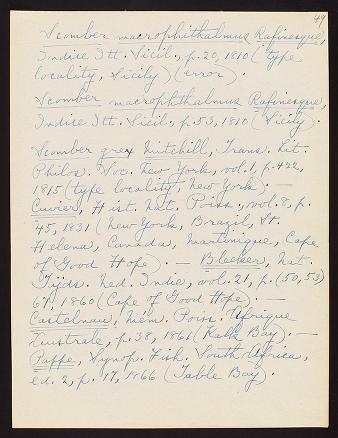 49
Scomber macrophithalmus Rafinesque,
Indice Itt. Sicil., p. 20, 1810 (type
locality, Sicily) (error).
Scomber macrophthalmus Rafinesque,
Indice Itt. Sicil., p. 53, 1810 (Sicily).
Scomber grex Mitchill, Trans. Lit.
Philos. Soc. New York, vol. 1, p. 422,
1815 (type locality, New York). —
Cuvier, Hist. Nat. Poiss., vol. 8, p.
45, 1831 (New York, Brazil, St.
Helena, Canada, Martinique, Cape
of Good Hope). — Bleeker, Nat.
Tijds. Ned. Indie, vol. 21, p. (50, 53)
67, 1860 (Cape of Good Hope). —
Castelnau, Mém. Poiss. Afrique
Australe, p. 38, 1861 (Kalk Bay). —
Pappe, Synop. Fish. South Africa,
ed. 2, p. 17, 1866 (Table Bay).